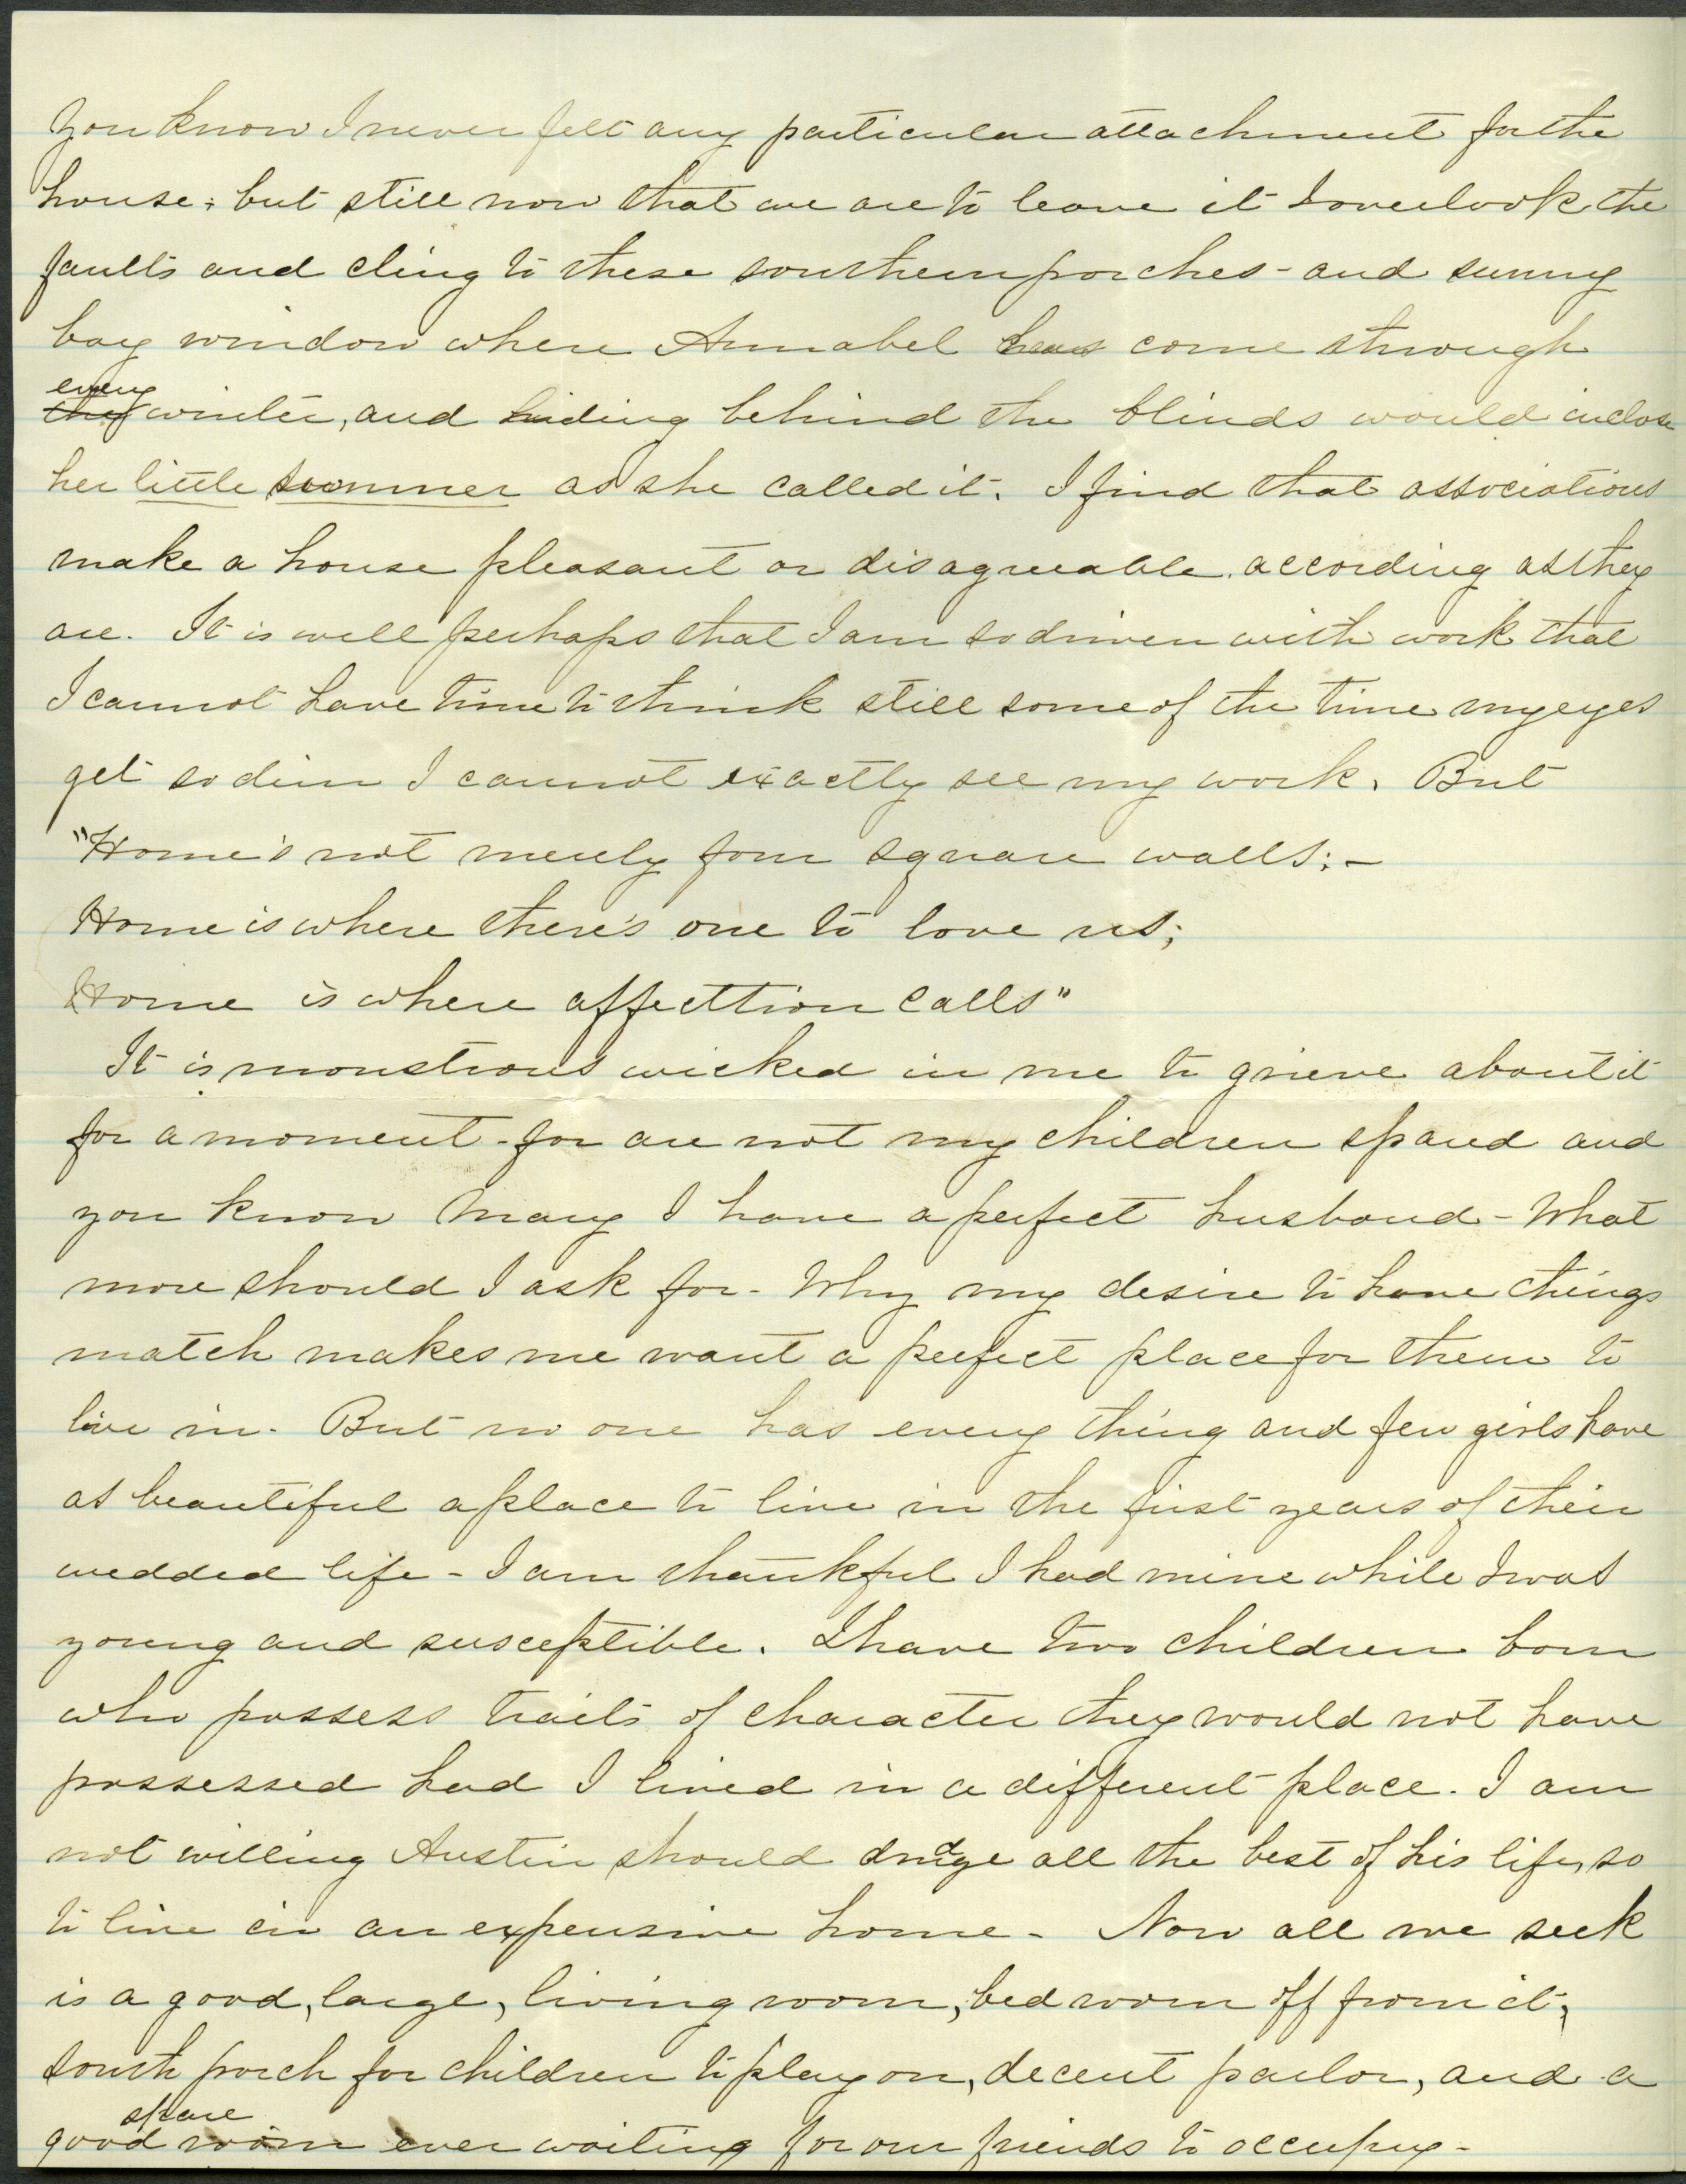 You know I never felt any particular attachment for the
house; but still now that we are to leave it I overlook the
faults and cling to these southern porches - and sunny
bay window where Annabel has come through
every
they winter, and hiding behind the blinds would inclose
her little summer as she called it. I find that associations
make a house pleasant or disagreeable according as they
are. It is well perhaps that I am so driven with work that
I cannot have time to think still some of the time my eyes
get so dim I cannot exactly see my work. But
"Home's not merely four square walls; -
Home is where there's one to love us;
Home is where affecttion calls"
It is monstrous wicked in me to grieve about it
for a moment - for are not my children spared and
you know Mary I have a perfect husband - What
more should I ask for - Why my desire to have things
match makes me want a perfect place for them to
live in. But no one has every thing and few girls have
as beautiful a place to live in the first years of their
wedded life - I am thankful I had mine while I was
young and susceptible. I have two children born
who possess traits of character they would not have
possessed had I lived in a different place. I am
not willing Austin should drudge all the best of his life, so
to live in an expensive home - Now all we seek
is a good, large, living room, bed room off from it,
south porch for children to play on, decent parlor, and a
spare
good room ever waiting for our friends to occupy -